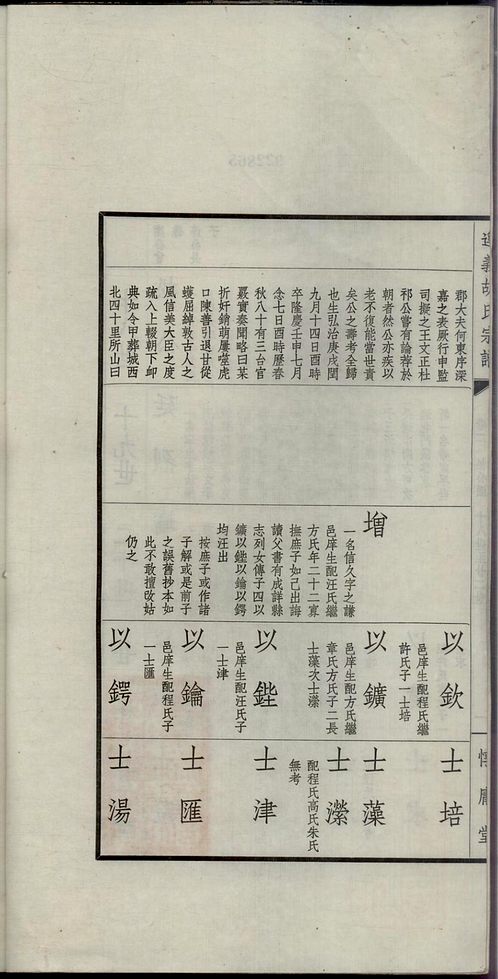 郡大夫何東序深
嘉之表厥行申監
司擬之王文正杜
祁公嘗有論荐於
朝者然公亦疾以
老不復能當世責
矣公之壽考全歸
也生弘治庚戌閏
九月十四日酉時
卒隆慶壬申七月
念七日酉時歷春
秋八十有三台官
覈實奏聞略曰某
折奸銷萌屢噬虎
口陳善引退甘從
蠖屈綽敦古人之
風信美大臣之度
疏入上輟朝下卹
典如令甲葬城西
北四十里所山曰
增
一名信久字之謙
邑庠生配汪氏繼
方氏年二十二寡
撫庶子如己出誨
讀父書有成詳縣
志列女傳子四以
鑛以鏗以鑰以鍔
均汪出
按庶子或作諸
子解或是前子
之誤舊抄本如
此不敢擅改姑
仍之
以欽
邑庠生配程氏繼
許氏子一士培
以鑛
邑庠生配方氏繼
章氏方氏子二長
士藻次士瀠
以鏗
邑庠生配汪氏子
一士津
以鑰
邑庠生配程氏子
一士匯
以鍔
士培
士藻
士瀠
配程氏高氏朱氏
無考
士津
士匯
士湯